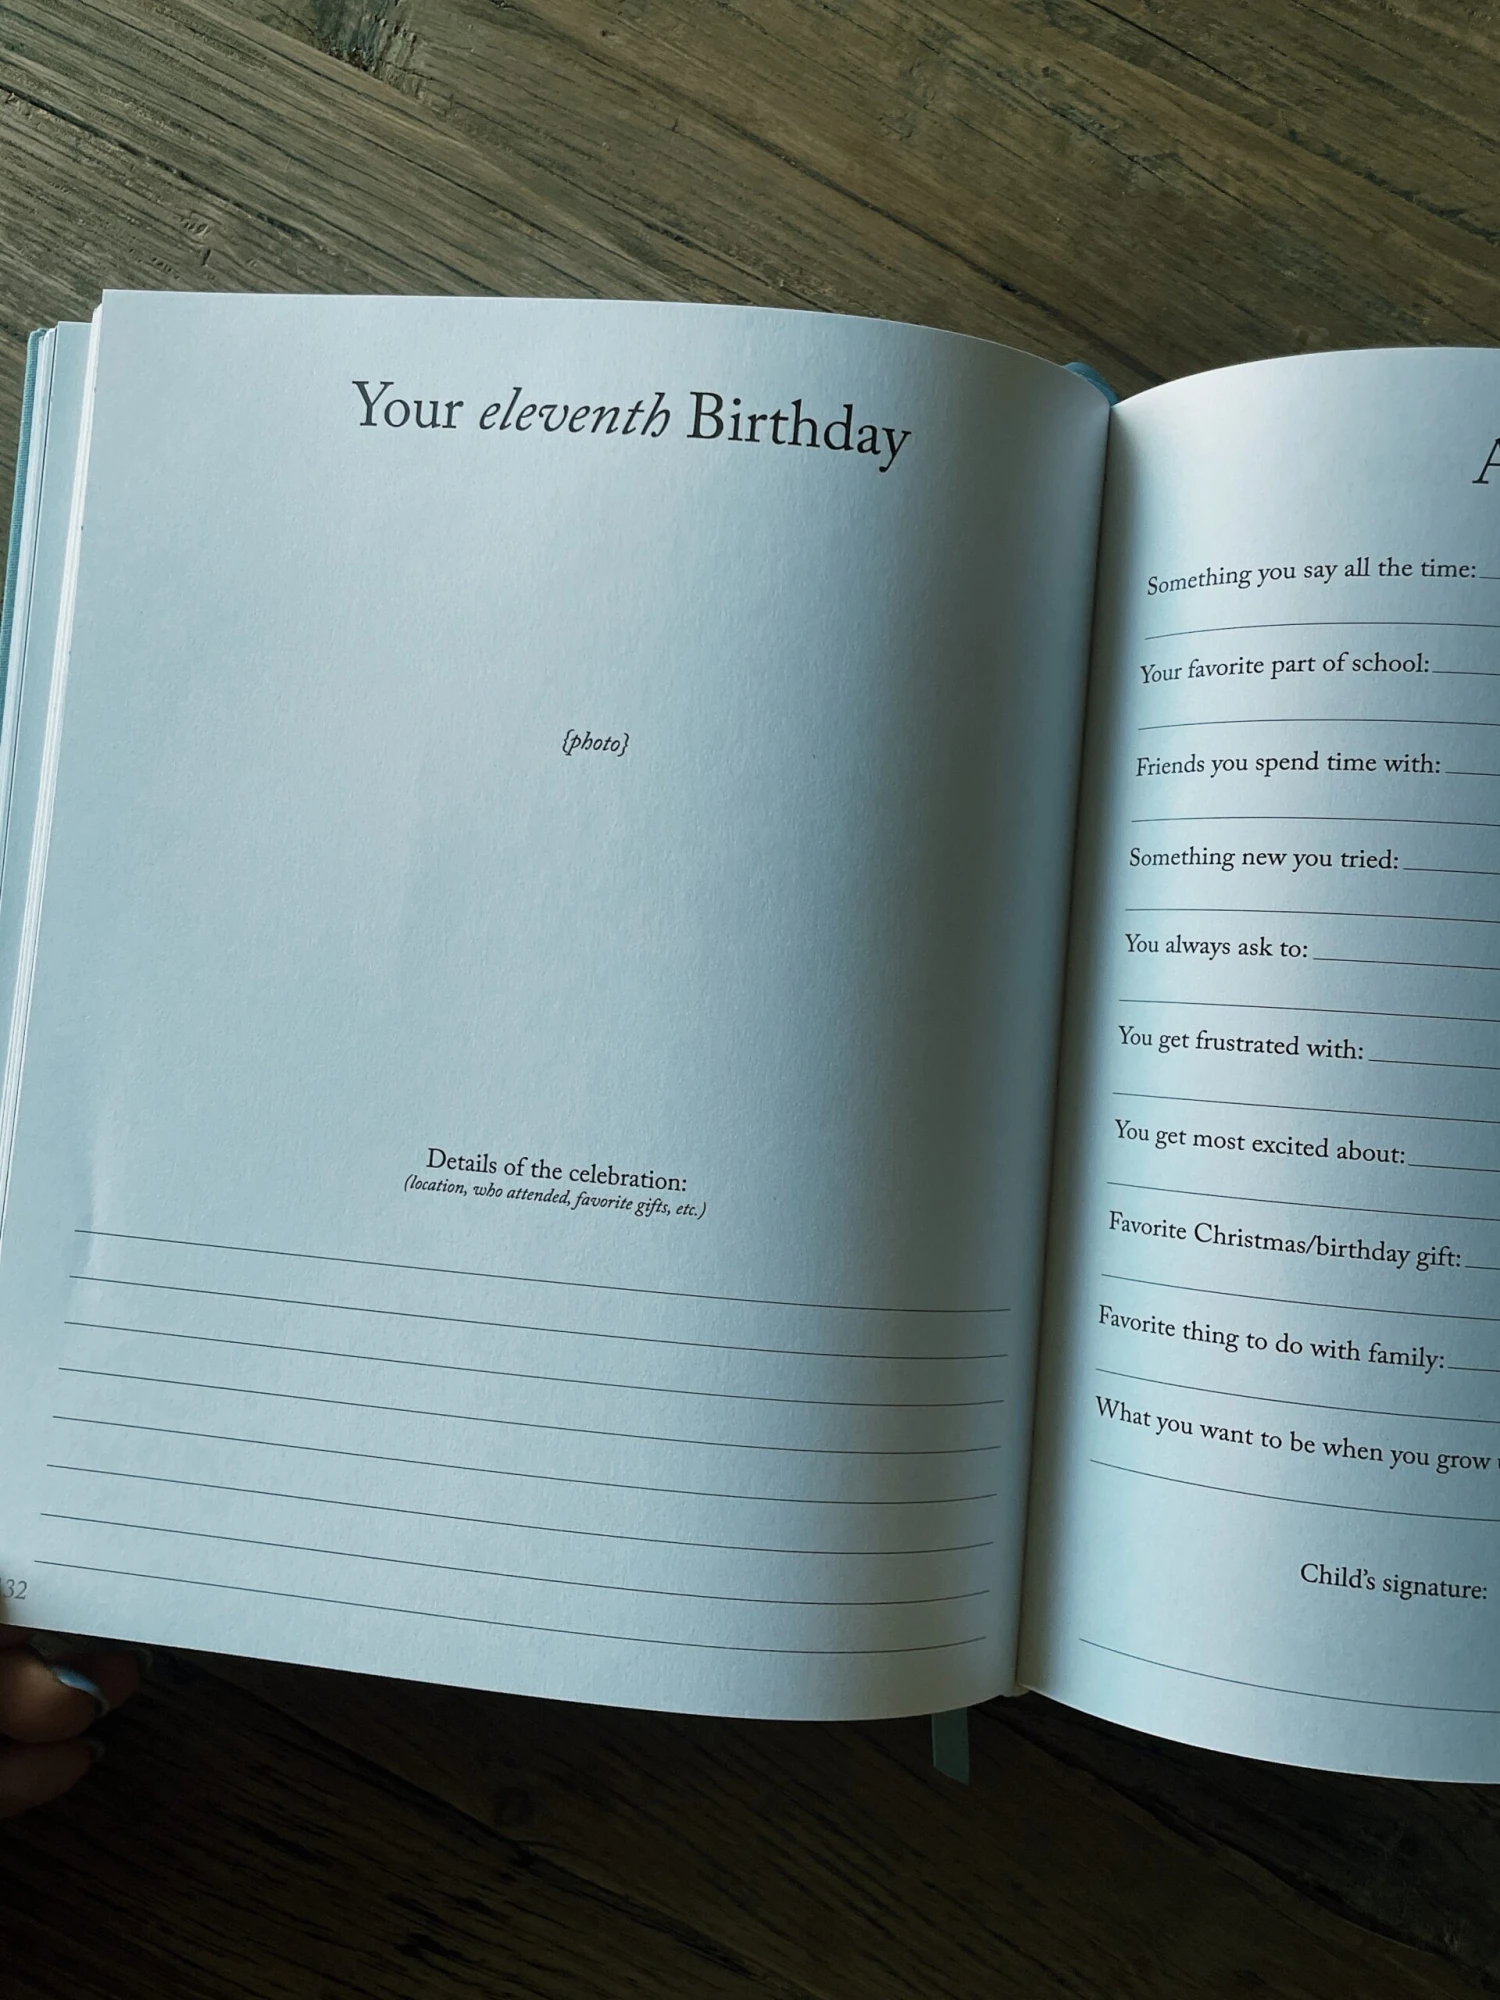 Your eleventh Birthday
{photo}
Details of the celebration:
(location, who attended, favorite gifts, etc.)
32
Something you say all the time:
Your favorite part of school:
Friends you spend time with:
Something new you tried:
You always ask to:
You get frustrated with:
You get most excited about:
Favorite Christmas/birthday gift:
Favorite thing to do with family:
What you want to be when you grow
Child's signature: